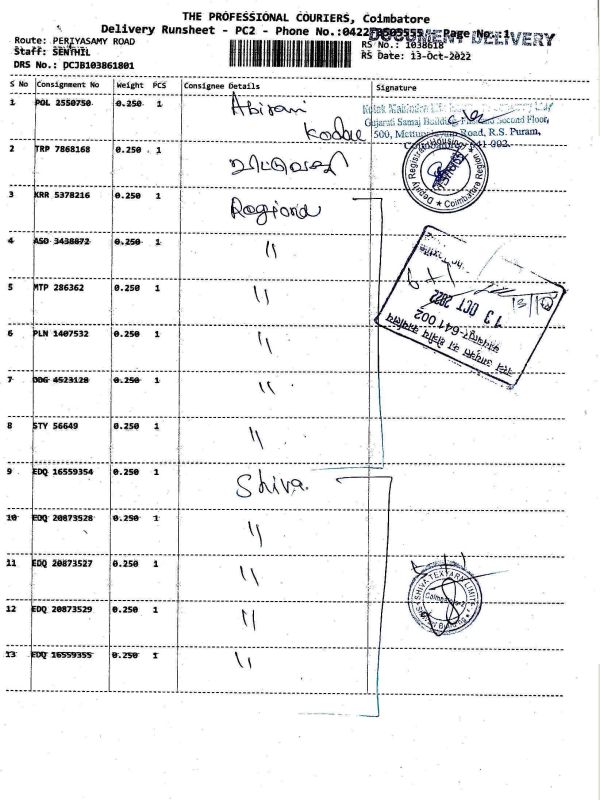 THE PROFESSIONAL COURIERS, Coimbatore
Delivery Runsheet - PC2 - Phone No.:0422 Page No.:1
DOCUMENT DELIVERY
Route: PERIYASAMY ROAD
RS No.: 1038618
Staff: SENTHIL
RS Date: 13-Oct-2022
DRS No.: DCJB103861801
S No Consignment No Weight PCS Consignee Details Signature
1 POL 2550750 0.250 1 Abirami
Gujarati Samaj Building, First and Second Floor,
500, Mettupalayam Road, R.S. Puram,
Coimbatore 641 002.
2 TRP 7868168 0.250 1
Coimbatore Region
3 KRR 5378216 0.250 1 Regional
4 ASO 3438872 0.250 1 "
13 OCT 2022
641 002
5 MTP 286362 0.250 1 "
6 PLN 1407532 0.250 1 "
7 ODG 4523128 0.250 1 "
8 STY 56649 0.250 1 "
9 EDQ 16559354 0.250 1 Shiva
10 EDQ 20873528 0.250 1 "
11 EDQ 20873527 0.250 1 "
SHIVA TEXYARN LIMITED
Coimbatore
12 EDQ 20873529 0.250 1 "
13 EDQ 16559355 0.250 1 "